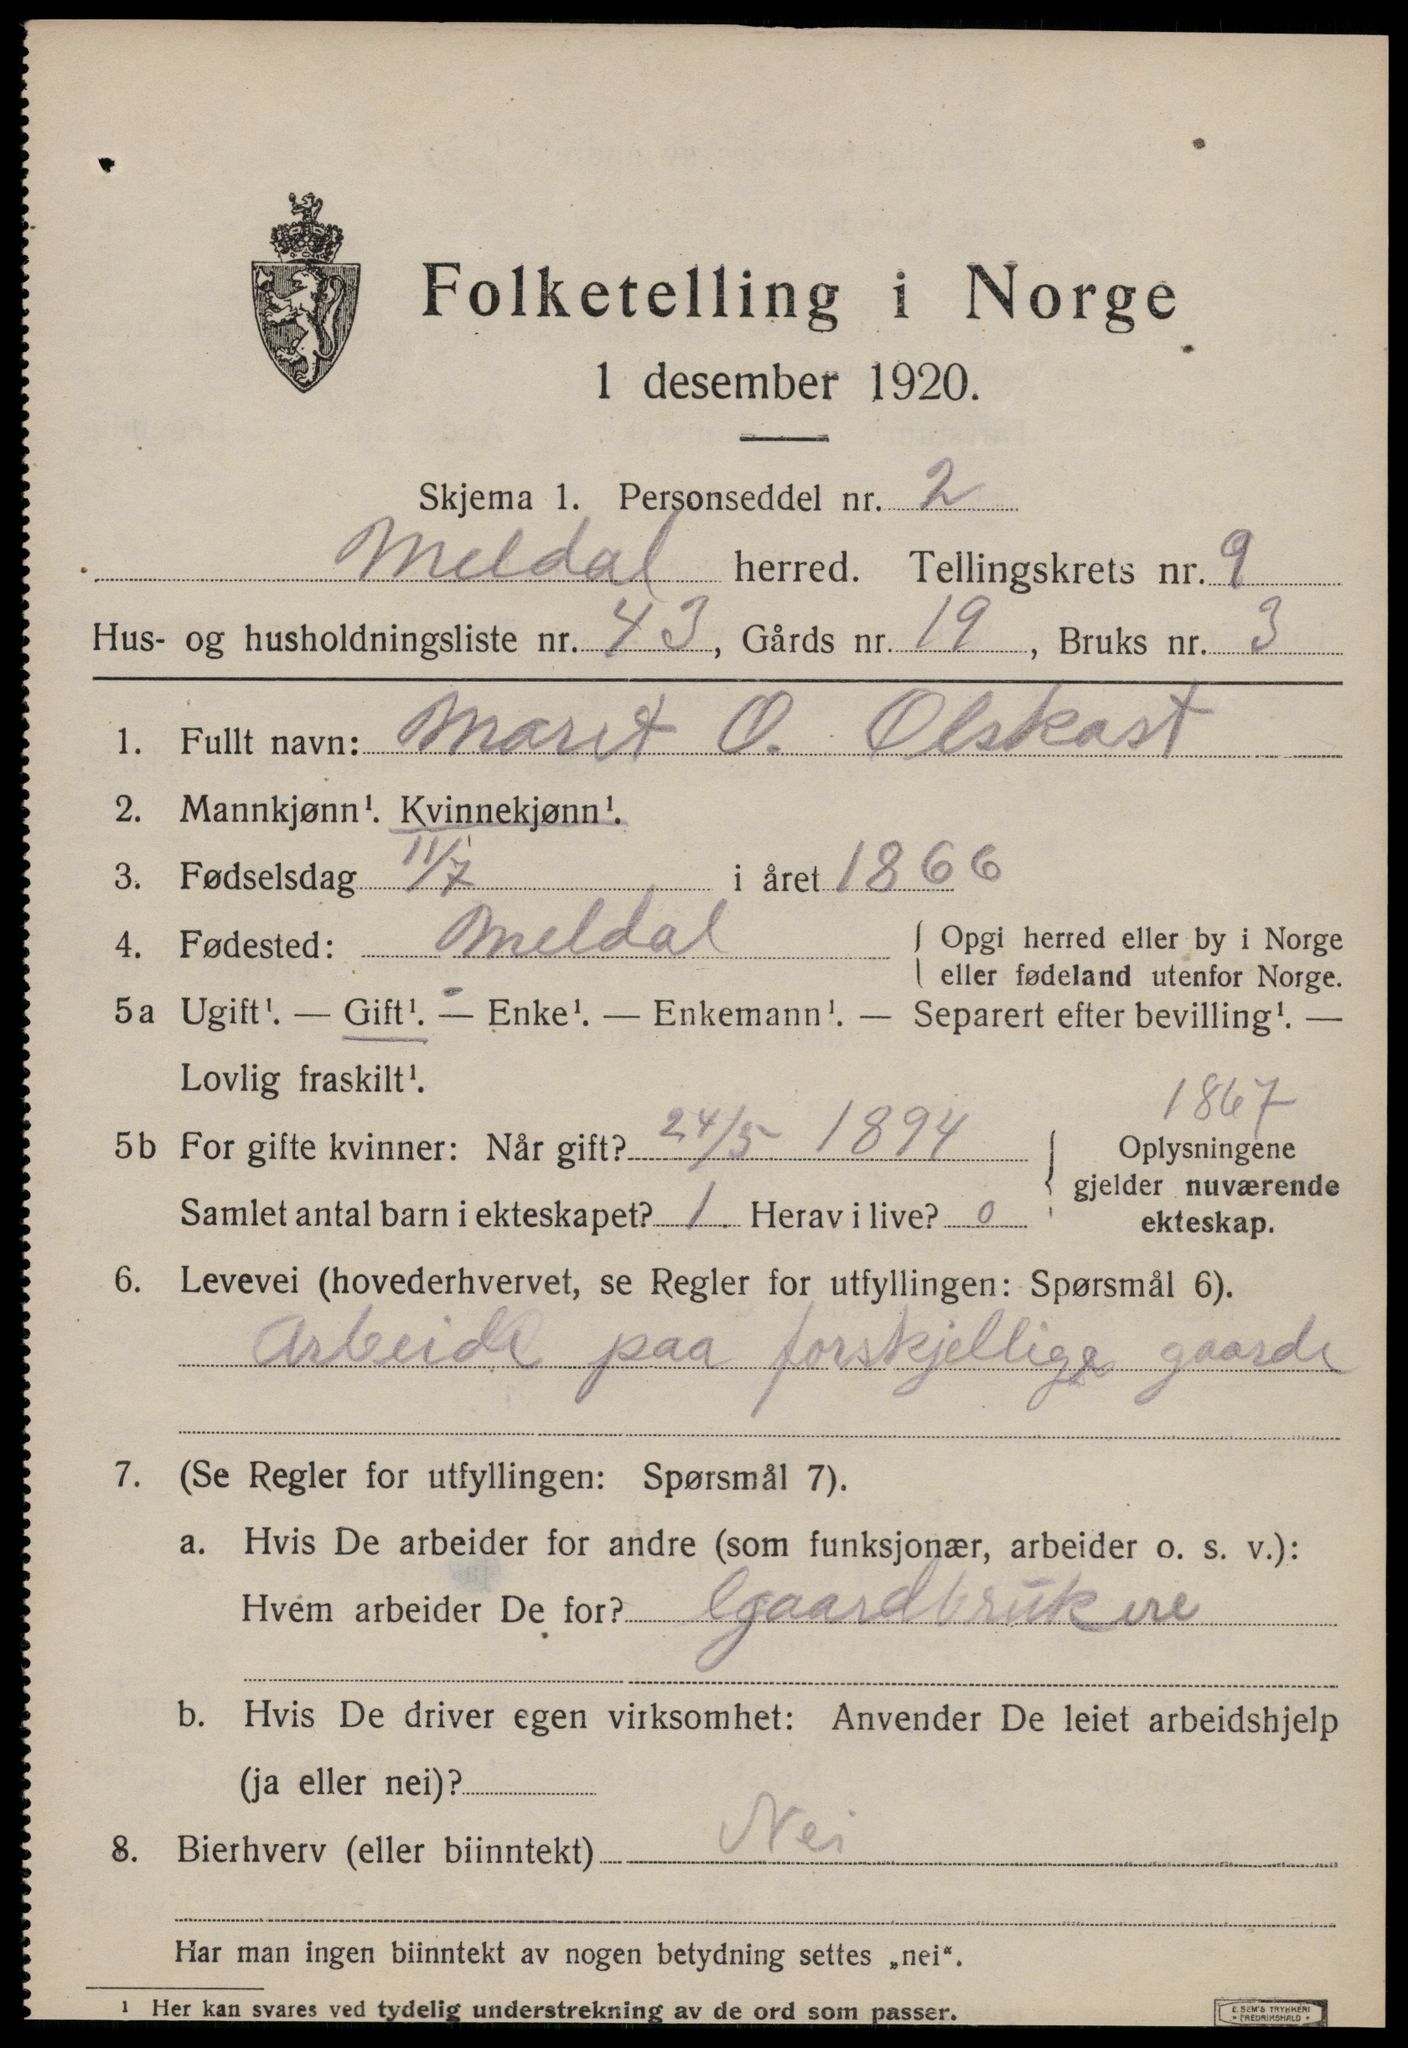 Folketelling i Norge
1 desember 1920.
Skjema 1. Personseddel nr. 2
Meldal herred. Tellingskrets nr. 9
Hus- og husholdningsliste nr. 43, Gårds nr. 19, Bruks nr. 3
1. Fullt navn: Marit O. Olskast
2. Mannkjønn¹. Kvinnekjønn¹.
3. Fødselsdag 11/7 i året 1866
4. Fødested: Meldal { Opgi herred eller by i Norge
eller fødeland utenfor Norge.
5a Ugift¹. — Gift¹. — Enke¹. — Enkemann¹. — Separert efter bevilling¹. —
Lovlig fraskilt¹.
1867
5b For gifte kvinner: Når gift? 24/5 1894 { Oplysningene
gjelder nuværende
Samlet antal barn i ekteskapet? 1. Herav i live? 0 ekteskap.
6. Levevei (hovederhvervet, se Regler for utfyllingen: Spørsmål 6).
Arbeide paa forskjellige gaarde
7. (Se Regler for utfyllingen: Spørsmål 7).
a. Hvis De arbeider for andre (som funksjonær, arbeider o. s. v.):
Hvem arbeider De for? Gaardbrukere
b. Hvis De driver egen virksomhet: Anvender De leiet arbeidshjelp
(ja eller nei)?
8. Bierhverv (eller biinntekt) Nei
Har man ingen biinntekt av nogen betydning settes „nei“.
¹ Her kan svares ved tydelig understrekning av de ord som passer.
E. SEM'S TRYKKERI
• FREDRIKSHALD •